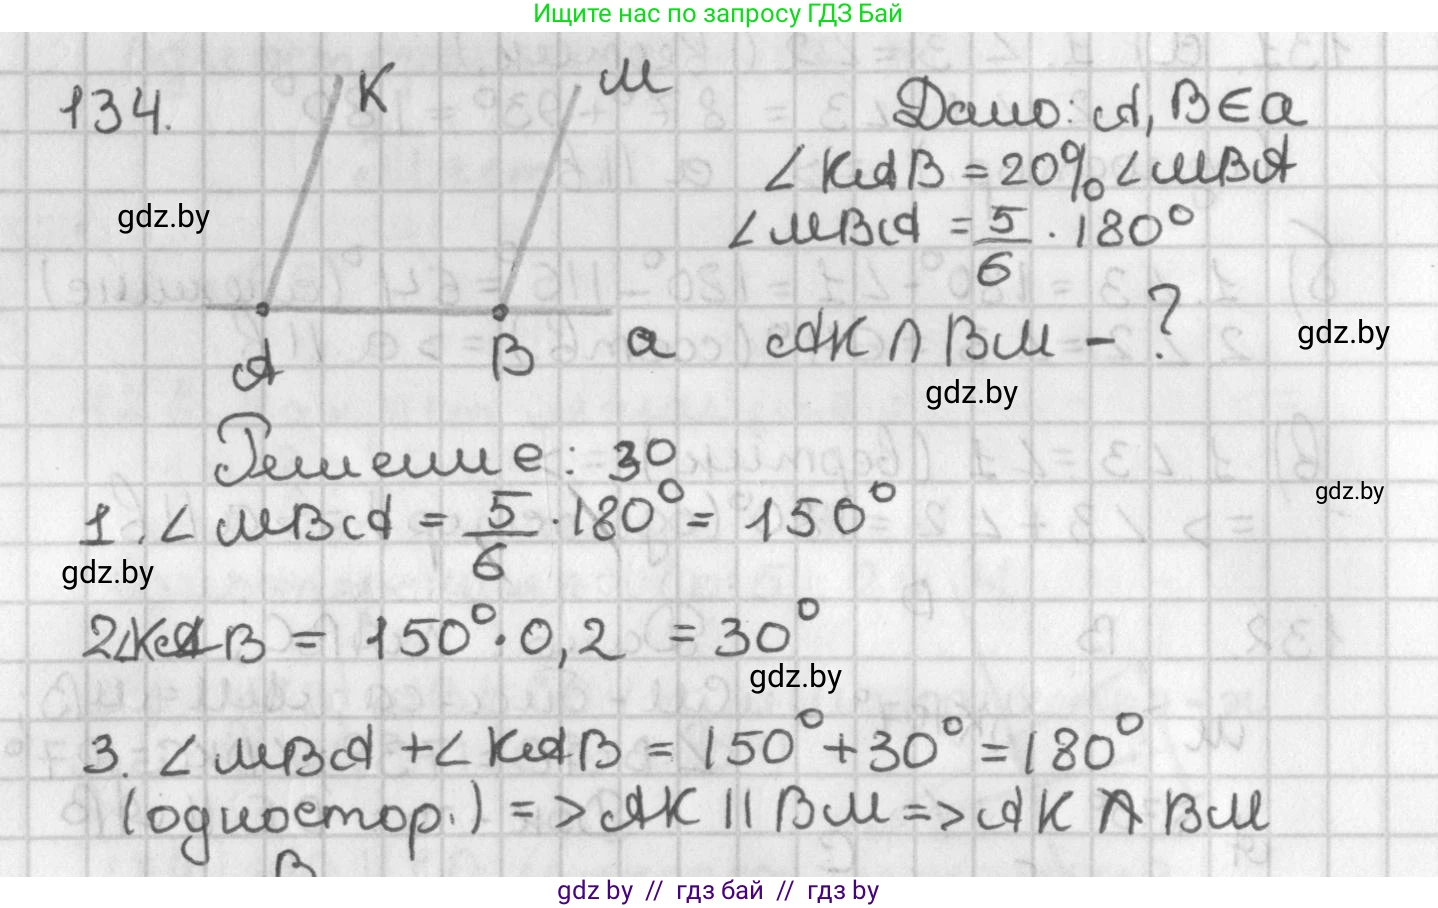 Ищите нас по запросу ГДЗ Бай
134.
K
M
Дано: A, B ∈ a
∠KAB = 20% ∠MBA
gdz.by
∠MBA = 5/6 · 180°
A
B
a
AK ∩ BM - ?
gdz.by
gdz.by
Решение: 30
gdz.by
1. ∠MBA = 5/6 · 180° = 150°
gdz.by
2∠KAB = 150° · 0,2 = 30°
gdz.by
3. ∠MBA + ∠KAB = 150° + 30° = 180°
(одностор.) => AK || BM => AK ∩ BM
B
gdz.by // гдз бай // gdz.by